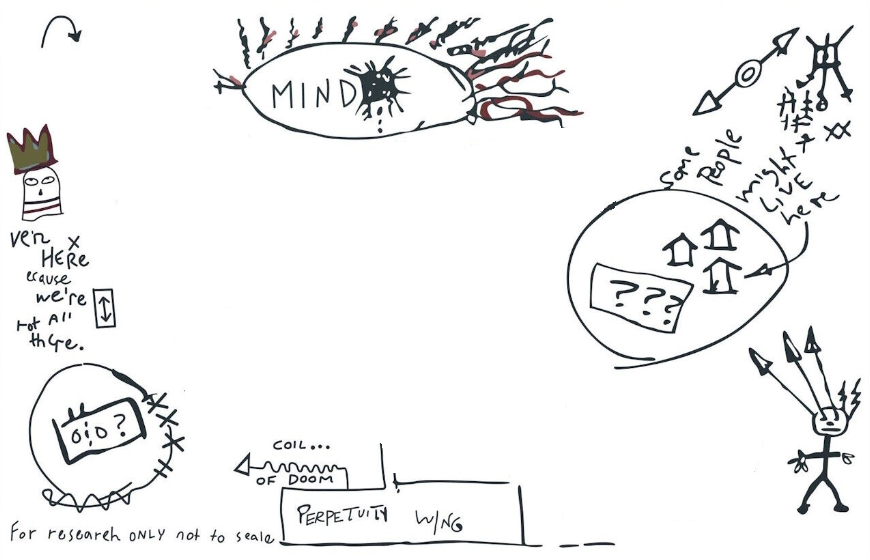 MIND
Some
People
might
LIVE
here
???
ve'r
HERe
ecause
we're
not All
there.
OID?
COIL...
OF DOOM
PERPETUITY WING
For research ONLY not to scale